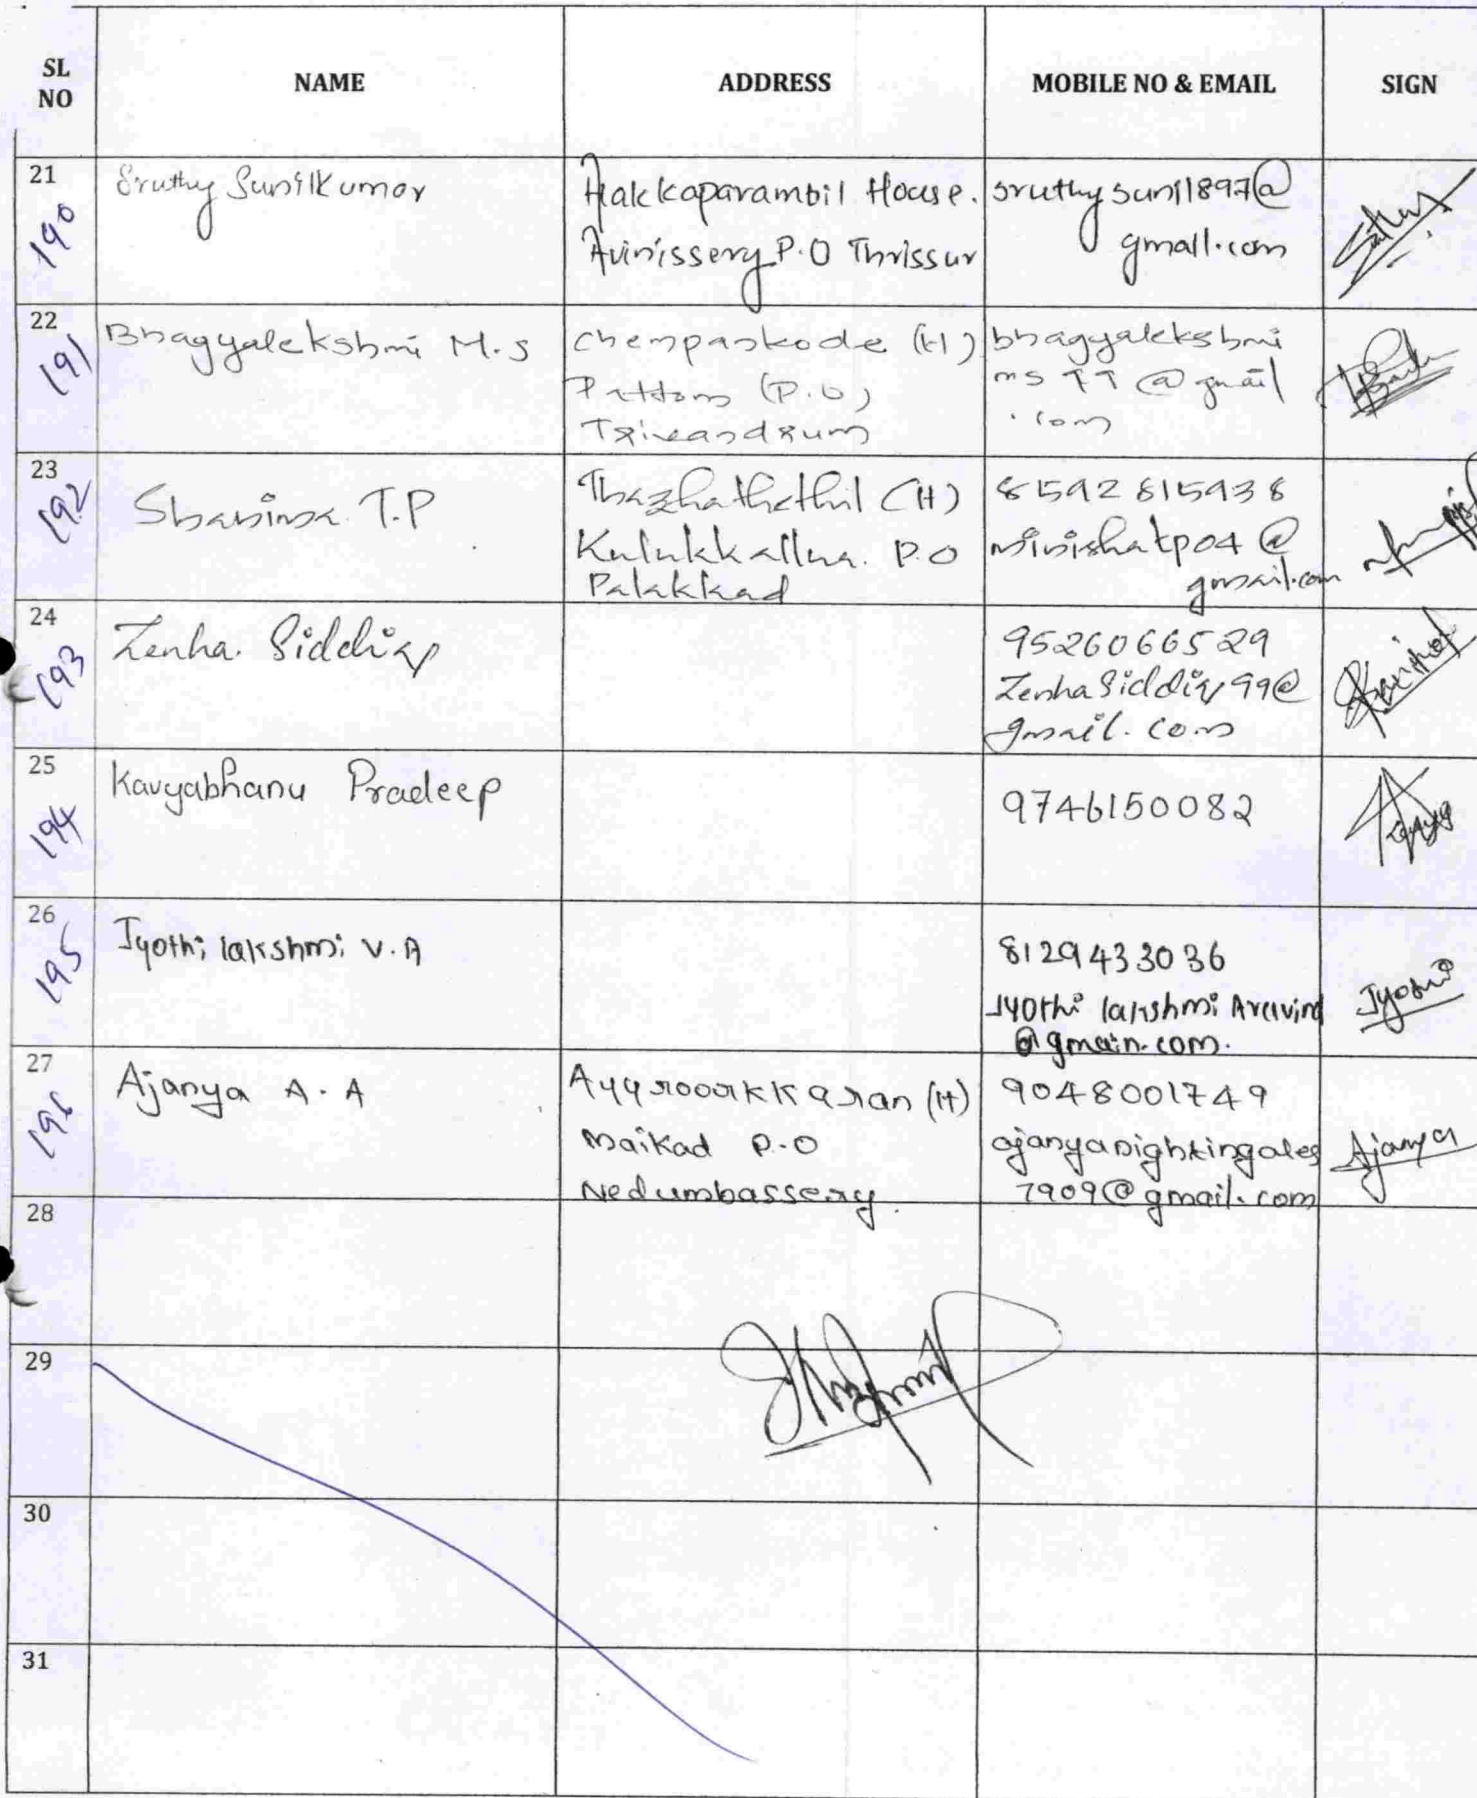 SL NO NAME ADDRESS MOBILE NO & EMAIL SIGN
21 190 Sruthy Sunilkumar
Hakkaparambil House.
Avinissery P.O Thrissur
sruthysunil897@
gmail.com
22 191 Bhagyalekshmi M.S
Chempankode (H)
Pattom (P.O)
Trivandrum
bhagyalekshmi
ms 77 @ gmail
.com
23 192 T.P
Thazhathethil (H)
P.O
Palakkad
8592815938
minishatp04 @
gmail.com
24 193 Zenha. Siddiq
9526066529
Zenhasiddiq99@
gmail.com
25 194 Kavyabhanu Pradeep
9746150082
26 195 Jyothi lakshmi V.A
8129433036
Jyothi lakshmi Aravind
@gmain.com.
Jyothi
27 196 Ajanya A.A
Ayyroorkkaran (H)
Maikad P.O
Nedumbassery.
9048001749
ajanyanightingales
7909@gmail.com
Ajanya
28
29
30
31